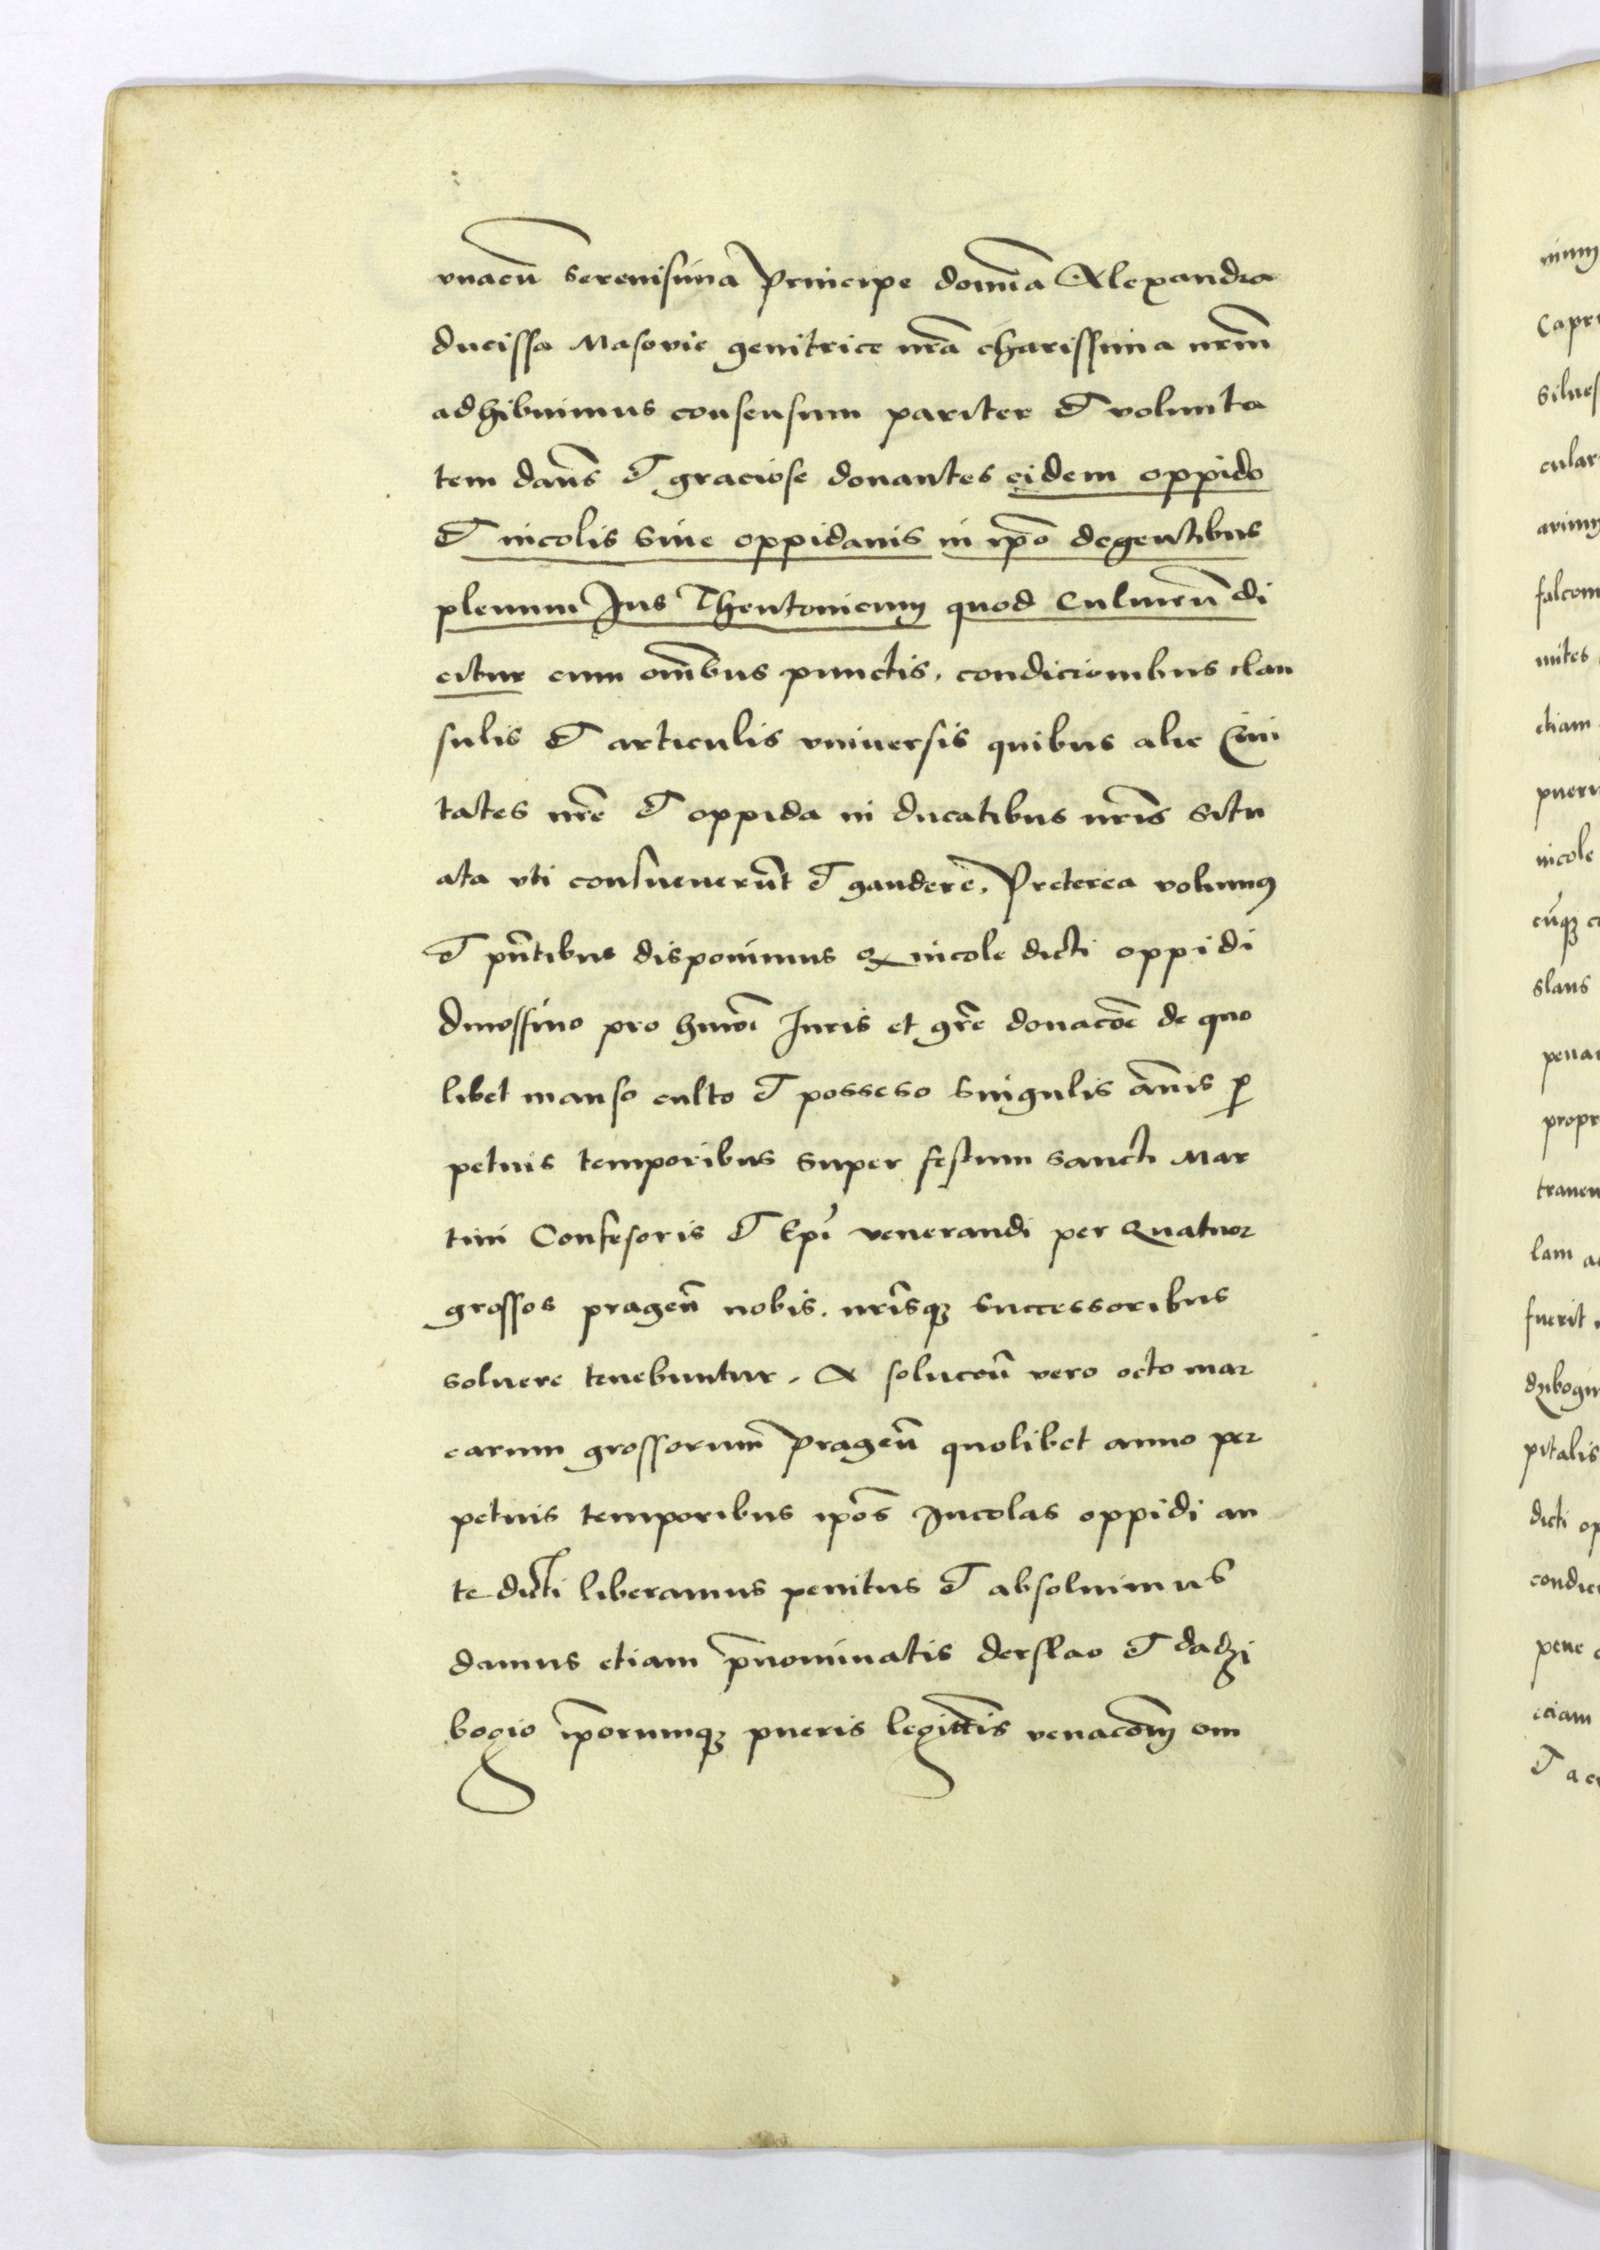 vnacū serenisima Principe domīa Alexandra
ducissa Masovie genitrice nrā charissima nrm̄
adhibuimus consensum pariter et volunta
tem dan̄s et graciose donantes eidem oppido
et incolis siue oppidanis in ipō degentibus
plenum Jus Theutonicum quod Culmen̄ di
citur cum om̄ibus punctis, condicionibus clau
sulis et articulis vniuersis quibus alie Ciui
tates nrē et oppida in ducatibus nrīs situ
ata vti consueuerūt et gaudere, Preterea volumus
et pn̄tibus disponimus q incole dicti oppidi
pro hmōi Juris et grē donacōe de quo
libet manso culto et posseso singulis annis p
petuis temporibus super festum sancti Mar
tini Confesoris et Epī venerandi per Quatuor
grossos pragen̄ nobis, nrīsq successoribus
soluere tenebuntur, A solucōn̄ vero octo mar
carum grossorum Pragen̄ quolibet anno per
petuis temporibus ipōs Incolas oppidi an
te dicti liberamus penitus et absoluimus
damus etiam p̄nominatis derslao et dadzi
bogio ip̄orumq pueris legittīs venacōm om